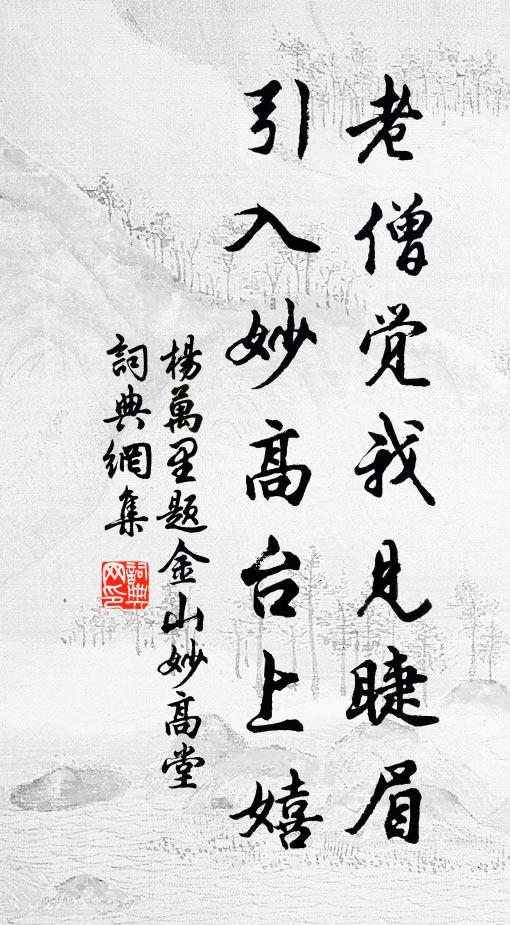 老僧觉我见睫眉
引入妙高台上嬉
楊萬里题金山妙高堂
詞典網集
詞典网印